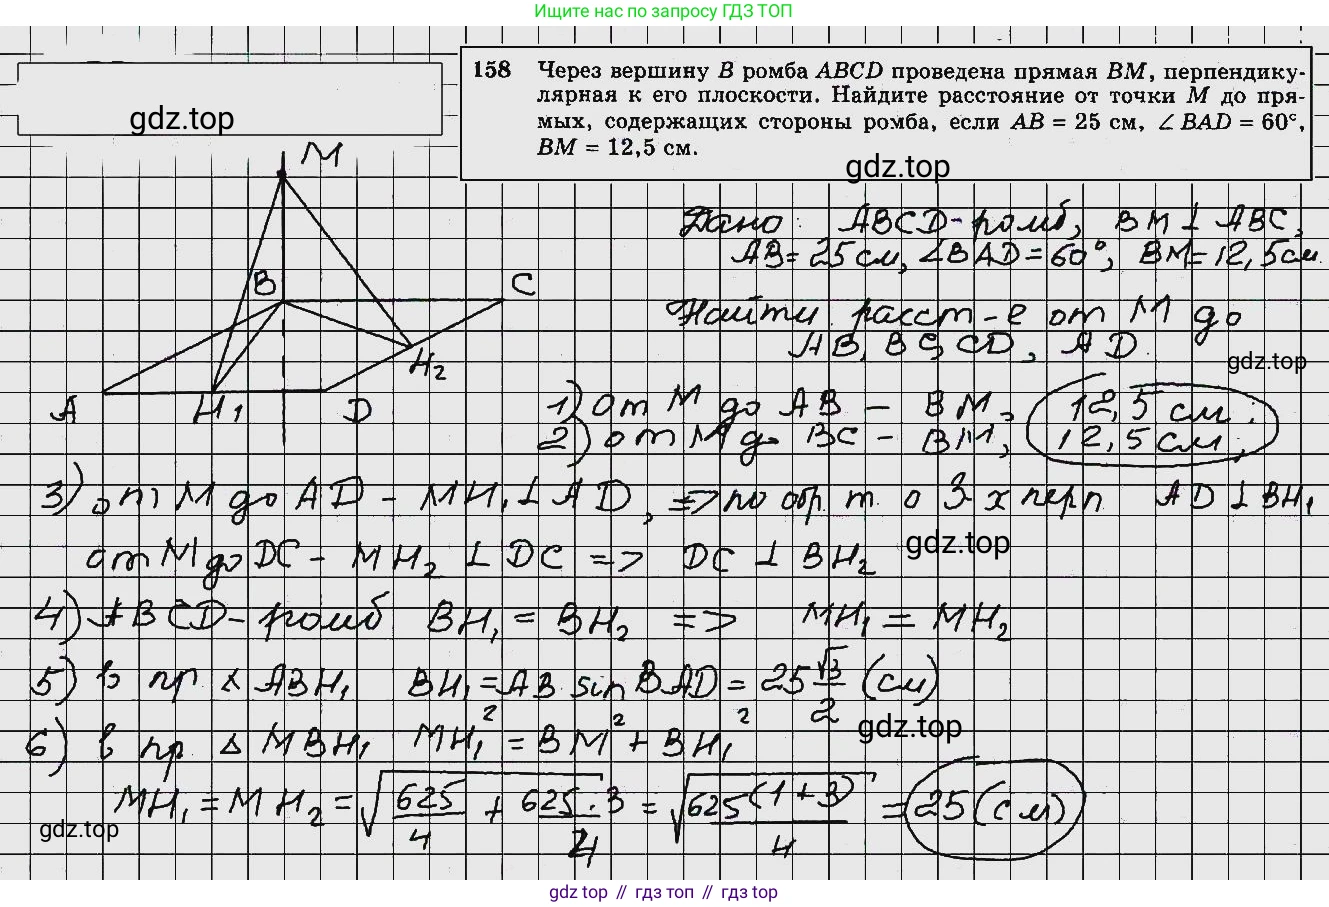 Ищите нас по запросу ГДЗ ТОП
gdz.top
158 Через вершину B ромба ABCD проведена прямая BM, перпендику-
лярная к его плоскости. Найдите расстояние от точки M до пря-
мых, содержащих стороны ромба, если AB = 25 см, ∠ BAD = 60°,
BM = 12,5 см.
gdz.top
M
B
C
H₂
A
H₁
D
Дано: ABCD-ромб, BM ⊥ ABC,
AB = 25 см, ∠BAD = 60°, BM = 12,5 см
Найти расст-е от M до
AB, BC, CD, AD.
gdz.top
1) от M до AB – BM, 12,5 см;
2) от M до BC – BM, 12,5 см;
3) от M до AD – MH₁ ⊥ AD, => по обр. т. о 3-х перп AD ⊥ BH₁
от M до DC – MH₂ ⊥ DC => DC ⊥ BH₂
gdz.top
4) ABCD-ромб BH₁ = BH₂ => MH₁ = MH₂
5) в пр △ ABH₁ BH₁ = AB sin BAD = 25 √3/2 (см)
gdz.top
6) в пр △ MBH₁ MH₁² = BM² + BH₁²
MH₁ = MH₂ = √(625/4 + 625·3/4) = √(625(1+3)/4) = 25 (см)
gdz.top
gdz top // гдз топ // gdz top